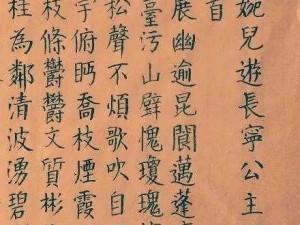 婉兒遊長寧公主
首
展幽逾昆閬邁蓬
臺污山壁愧瓊瑰
松聲不煩歌吹自
宇俯眄喬枝煙霞
枝條鬱鬱文質彬
桂為鄰清波湧碧